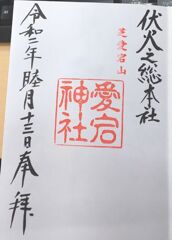 伏火之総本社
芝愛宕山
愛宕神社
令和二年睦月十三日奉拝